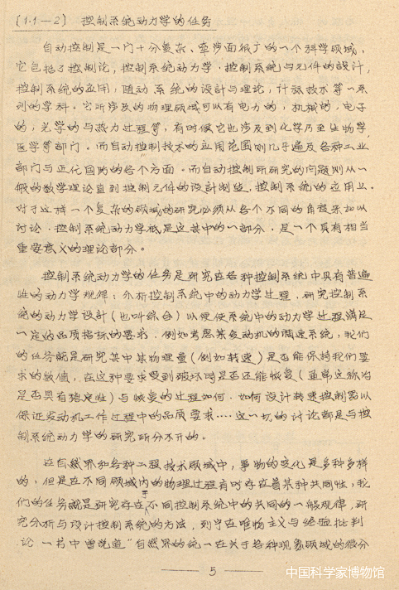 [1·1—2] 控制系统动力学的任务
自动控制是一门十分复杂、牵涉面极广的一个科学领域,
它包括了控制论,控制系统动力学,控制系统与元件的设计,
控制系统的应用,随动系统的设计与理论,计算技术等一系
列的学科。它所涉及的物理领域可以有电力的,机械的,电子
的,光学的与热力过程等,有时候它也涉及到化学乃至生物学
医学等部门。而自动控制技术的应用范围则几乎遍及各种工业
部门与近代国防的各个方面。而自动控制所研究的问题则从一
般的数学理论直到控制元件的设计制造,控制系统的应用止。
对于这样一个复杂的领域的研究必须从各个不同的角度来加以
讨论,控制系统动力学就是这其中的一部分,是一个具有相当
重要意义的理论部分。
控制系统动力学的任务是研究在各种控制系统中具有普遍
性的动力学规律;分析控制系统中的动力学过程,研究控制系
统的动力学设计(也叫综合)以便使系统中的动力学过程满足
一定的品质指标的要求。例如考虑某发动机的调速系统,我们
的任务就是研究其中某物理量(例如转速)是否能保持我们要
求的数值,在这种要求受到破坏时是否还能恢复(通常又称为
是否具有稳定性)与恢复的过程如何,如何设计转速控制器以
保证发动机工作过程中的品质要求····这一切的讨论都是与控
制系统动力学的研究所分不开的。
在自然界和各种工程技术领域中,事物的变化是多种多样
的,但是在不同领域内的物理过程有时存在着某种共同性,我
们的任务就是研究存在于不同控制系统中的共同的一般规律,研
究分析与设计控制系统的方法,列宁在唯物主义与经验批判
论一书中曾说道"自然界的统一在关于各种现象领域的微分
5
中国科学家博物馆